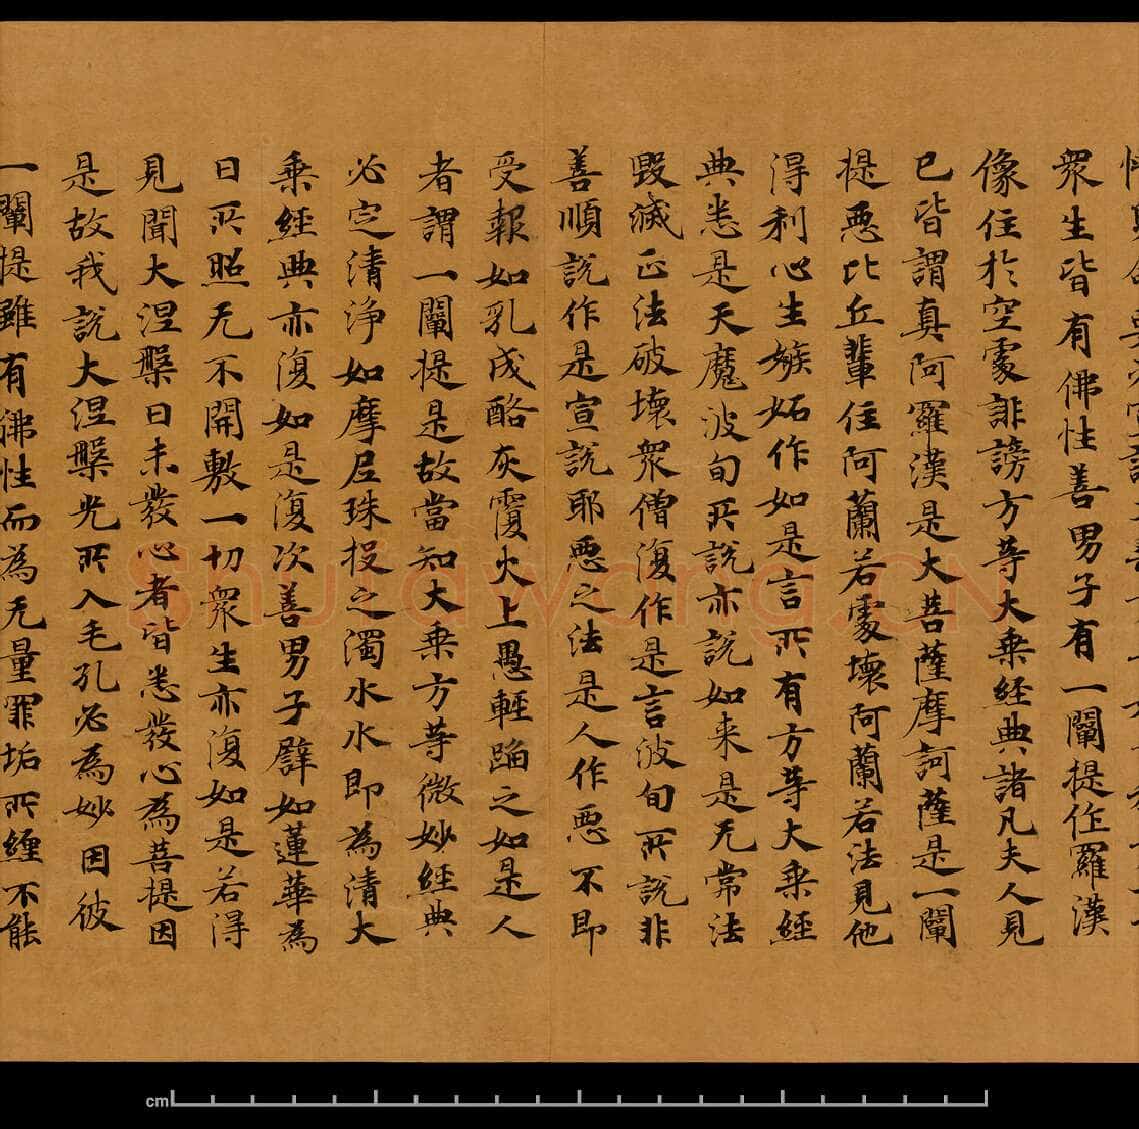 衆生皆有佛性善男子有一闡提作羅漢
像住於空處誹謗方等大乗經典諸凡夫人見
已皆謂真阿羅漢是大菩薩摩訶薩是一闡
提惡比丘輩住阿蘭若處壞阿蘭若法見他
得利心生嫉妬作如是言所有方等大乗經
典悉是天魔波旬所說亦說如来是无常法
毀滅正法破壞衆僧復作是言波旬所說非
善順說作是宣說耶惡之法是人作惡不即
受報如乳成酪灰覆火上愚輕蹈之如是人
者謂一闡提是故當知大乗方等微妙經典
必定清浄如摩尼珠投之濁水水即為清大
乗經典亦復如是復次善男子譬如蓮華為
日所照无不開敷一切衆生亦復如是若得
見聞大涅槃日未發心者皆悉發心為菩提因
是故我說大涅槃光所入毛孔必為妙因彼
一闡提雖有佛性而為无量罪垢所纏不能
shufawang.CN
cm